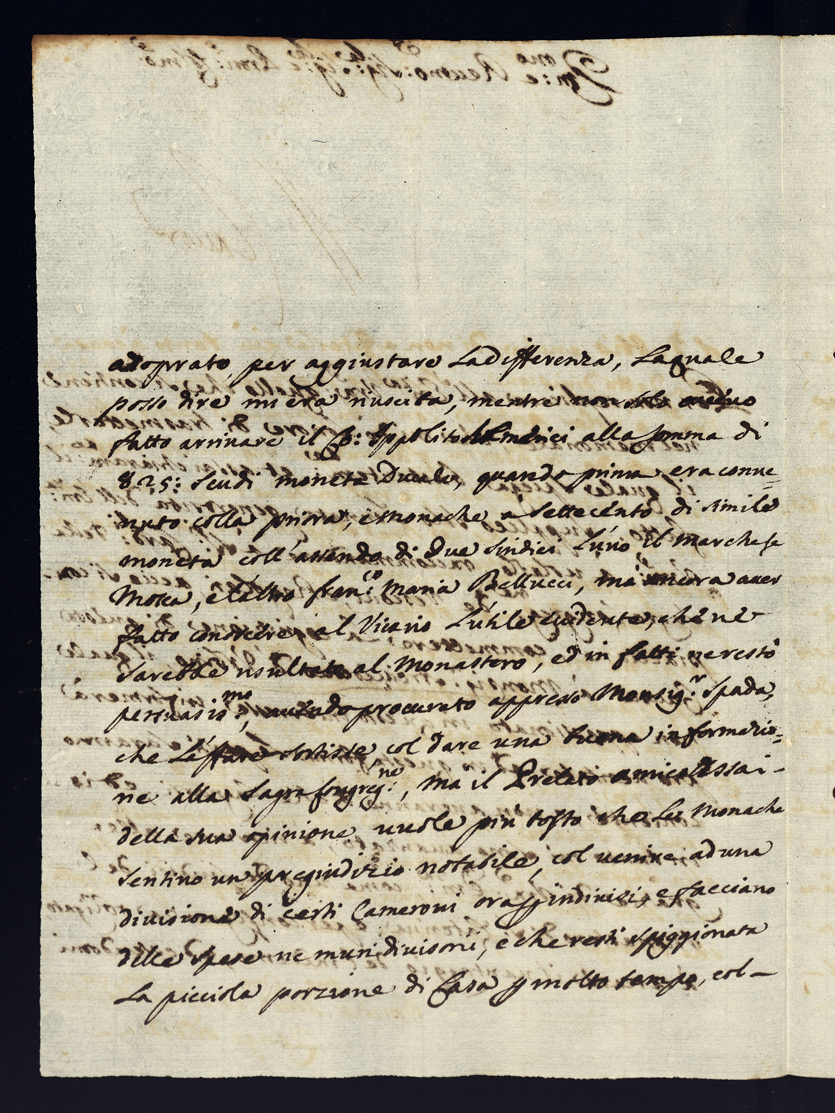 adoprato, per aggiustare La differenza, La quale
posso dire mi era riuscita, mentre non solo avevo
fatto arrivare il Ippolito Almerici alla somma di
825: scudi moneta Ducale, quando prima era conve=
nuto colla priora, e Monache a settecento di simile
moneta coll'assenso di due sindici L'uno il Marchese
Mosca, e l'altro Fran:co Maria Bellucci, mà ancora aver
fatto conoscere al Vicario L'utile evidente, che ne
sarebbe risultato al Monastero, ed in fatti ne restò
persuasis:mo, avendo procurato appresso Monsig:r Spada,
che L'affare sortisse, col dare una buona informazio=
ne alla Sagra Congreg:ne, ma il Prelato amico assai
della sua opinione vuole più tosto che Le Monache
sentino un pregiuditio notabile, col venire ad una
divisione di certi Cameroni ora indivisi, e facciano
delle spese ne muri divisorii, e che resti spiggionata
La picciola porzione di Casa p molto tempo, col–